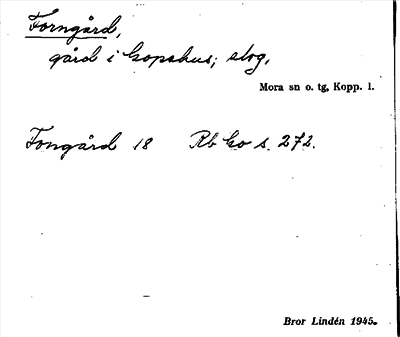 Forngård,
gård i Gopshus; slog,
Mora sn o. tg, Kopp. l.
Fongård 18 Rb Go s. 272.
Bror Lindén 1945.